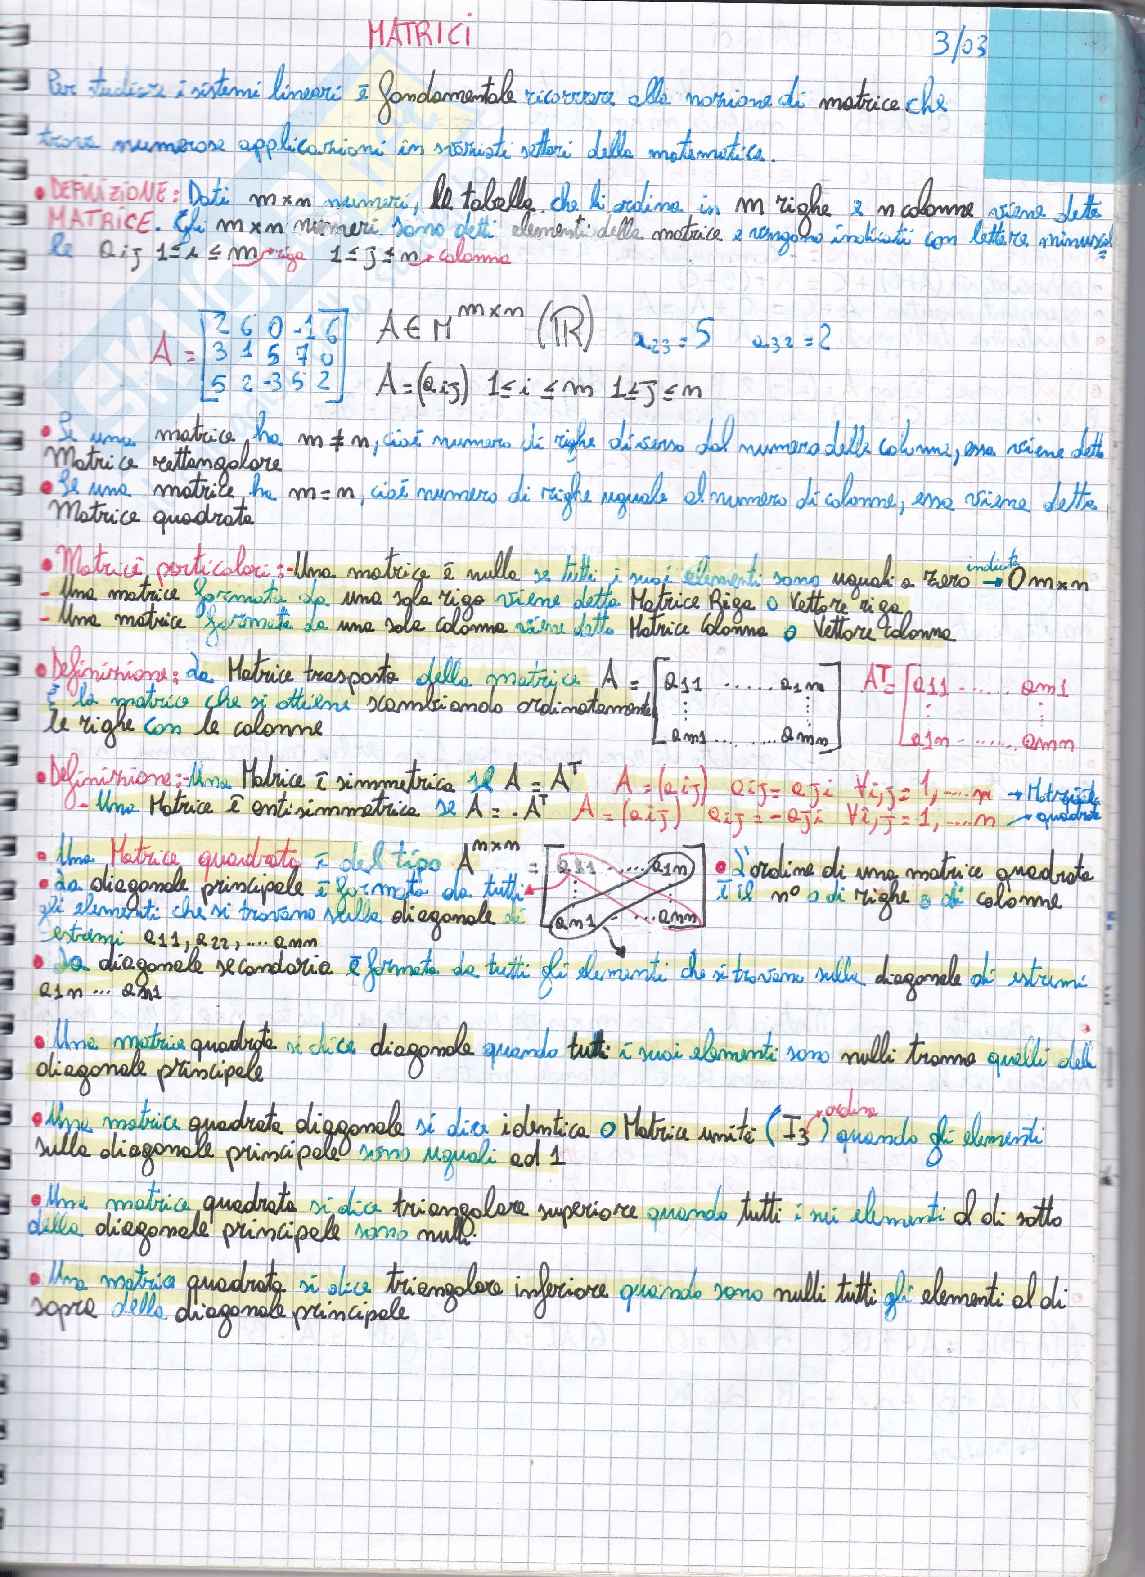 MATRICI
3/03
Per studiare i sistemi lineari è fondamentale ricorrere alla nozione di matrice che
trova numerose applicazioni in svariati settori della matematica.
• DEFINIZIONE: Dati m×n numeri, la tabella che li ordina in m righe e n colonne viene detta
MATRICE. Gli m×n numeri sono detti elementi della matrice e vengono indicati con lettere minusco
le aij 1≤i≤m→riga 1≤j≤n→colonna
A = [2 6 0 -1 6
3 1 5 7 0
5 2 -3 5 2]
A ∈ M^m×n (ℝ) a23=5 a32=2
A=(aij) 1≤i≤m 1≤j≤n
• Se una matrice ha m≠n, cioè numero di righe diverso dal numero delle colonne, essa viene detta
Matrice rettangolare
• Se una matrice ha m=n, cioè numero di righe uguale al numero di colonne, essa viene detta
Matrice quadrata
• Matrici particolari:-Una matrice è nulla se tutti i suoi elementi sono uguali a zero → 0m×n
- Una matrice formata da una sola riga viene detta Matrice Riga o Vettore riga
- Una matrice formata da una sola colonna viene detta Matrice colonna o Vettore colonna
• Definizione: La Matrice trasposta della matrice A = [a11 ...... a1n
am1 ........ amn] A^T = [a11 ...... am1
a1n ....... amn]
è la matrice che si ottiene scambiando ordinatamente
le righe con le colonne
• Definizione:-Una Matrice è simmetrica se A = A^T A=(aij) aij=aji ∀i,j=1,....n → Matrice
- Una Matrice è antisimmetrica se A=-A^T A=(aij) aij=-aji ∀i,j=1,....n → quadrata
• Una Matrice quadrata è del tipo A^n×n = [a11 ..... a1n
an1 ..... ann]
• La diagonale principale è formata da tutti
gli elementi che si trovano sulla diagonale di
estremi a11, a22, .... ann
• L'ordine di una matrice quadrata
è il n° o di righe o di colonne
• La diagonale secondaria è formata da tutti gli elementi che si trovano sulla diagonale di estremi
a1n ... an1
• Una matrice quadrata si dice diagonale quando tutti i suoi elementi sono nulli tranne quelli della
diagonale principale
• Una matrice quadrata diagonale si dice identica o Matrice unità (I3→ordine) quando gli elementi
sulla diagonale principale sono uguali ad 1
• Una matrice quadrata si dice triangolare superiore quando tutti i sui elementi al di sotto
della diagonale principale sono nulli.
• Una matrice quadrata si dice triangolare inferiore quando sono nulli tutti gli elementi al di
sopra della diagonale principale